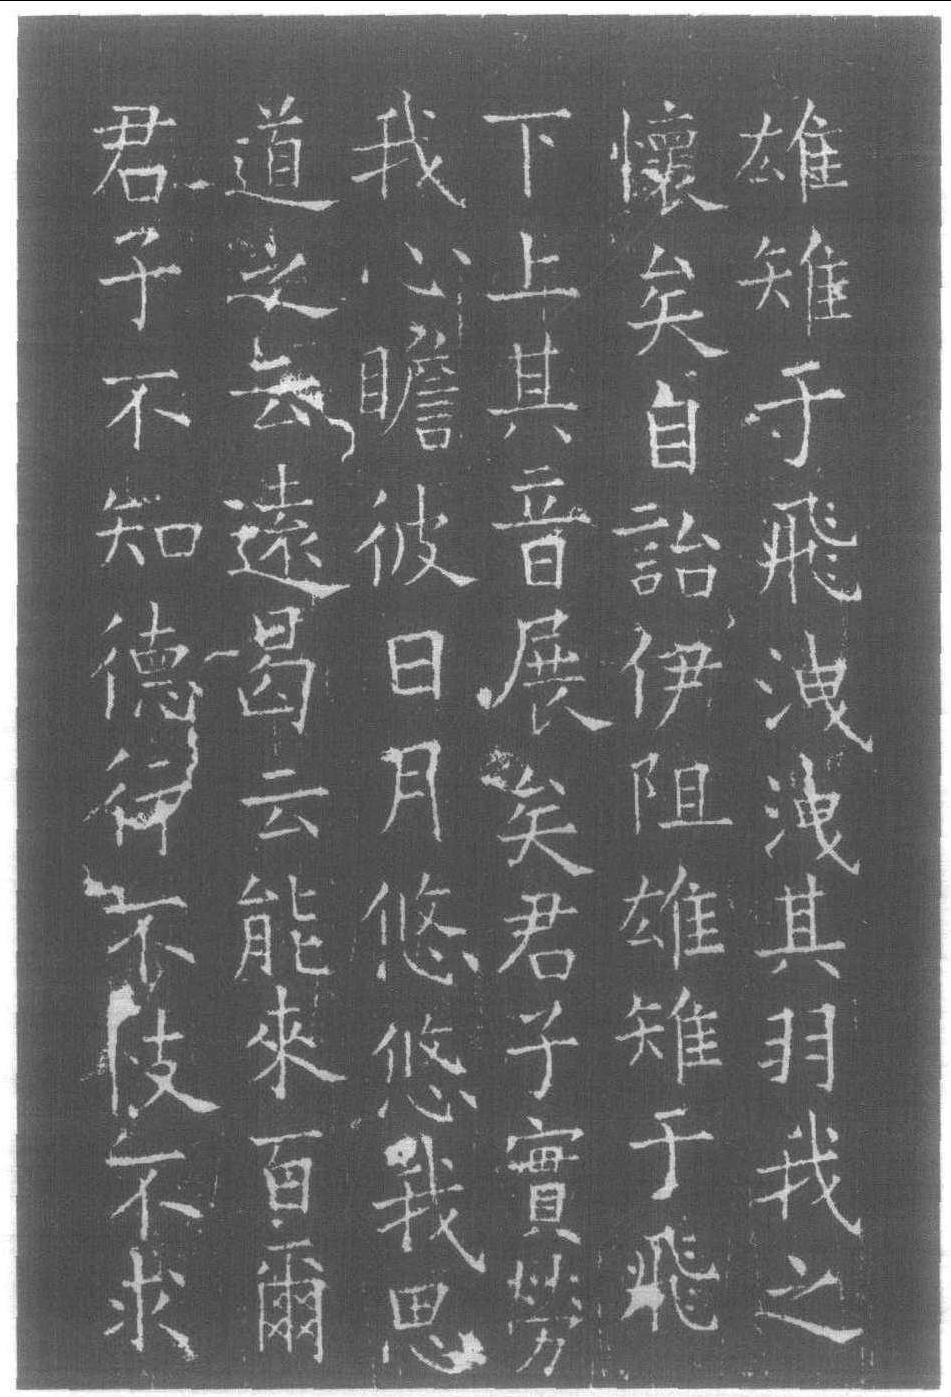 雄雉于飛洩洩其羽我之
懷矣自詒伊阻雄雉于飛
下上其音展矣君子實勞
我心瞻彼日月悠悠我思
道之云遠曷云能來百爾
君子不知德行不忮不求